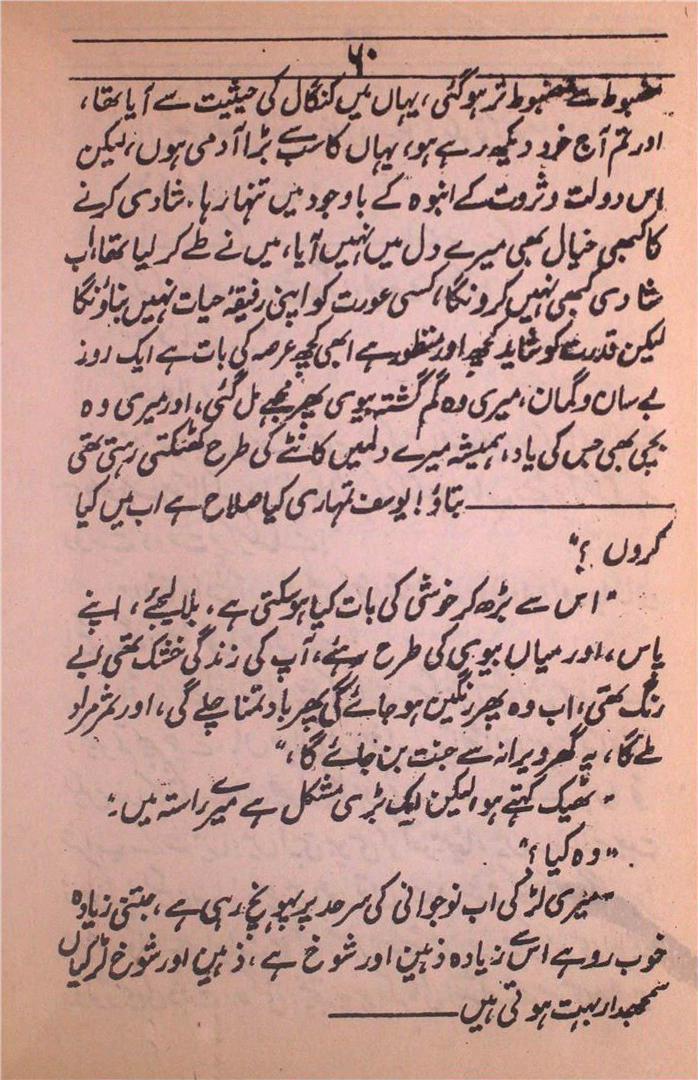 ۶۰
مضبوط سے مضبوط تر ہوگئی، یہاں میں کنگال کی حیثیت سے آیا تھا،
اور تم آج خود دیکھ رہے ہو، یہاں کا سب سے بڑا آدمی ہوں، لیکن
اس دولت و ثروت کے انبوہ کے باوجود میں تنہا رہا. شادی کرنے
کا کبھی خیال بھی میرے دل میں نہیں آیا، میں نے طے کر لیا تھا، اب
شادی کبھی نہیں کرونگا، کسی عورت کو اپنی رفیقۂ حیات نہیں بناؤنگا
لیکن قدرت کو شاید کچھ اور منظور ہے ابھی کچھ عرصہ کی بات ہے ایک روز
بے سان و گمان، میری وہ گم گشتہ بیوی پھر مجھے مل گئی، اور میری وہ
بچی بھی جس کی یاد، ہمیشہ میرے دلمیں کانٹے کی طرح کھٹکتی رہتی تھی
ــــــــــ بتاؤ! یوسف تمہاری کیا صلاح ہے اب میں کیا
کروں ؟"
"اس سے بڑھ کر خوشی کی بات کیا ہو سکتی ہے، بلا لیجئے، اپنے
پاس، اور میاں بیوی کی طرح رہئے، آپ کی زندگی خشک تھی بے
رنگ تھی، اب وہ پھر رنگین ہو جائے گی پھر باد تمنا چلے گی، اور ثمر مراد
ملے گا، یہ گھر ویرانہ سے جنت بن جائے گا،"
"ٹھیک کہتے ہو، لیکن ایک بڑی مشکل ہے میرے راستہ میں."
"وہ کیا ؟"
"میری لڑکی اب نوجوانی کی سرحد پر پہونچ رہی ہے، جتنی زیادہ
خوب رو ہے اس سے زیادہ ذہین اور شوخ ہے، ذہین اور شوخ لڑکیاں
سمجھدار بہت ہوتی ہیں ــــــــــ